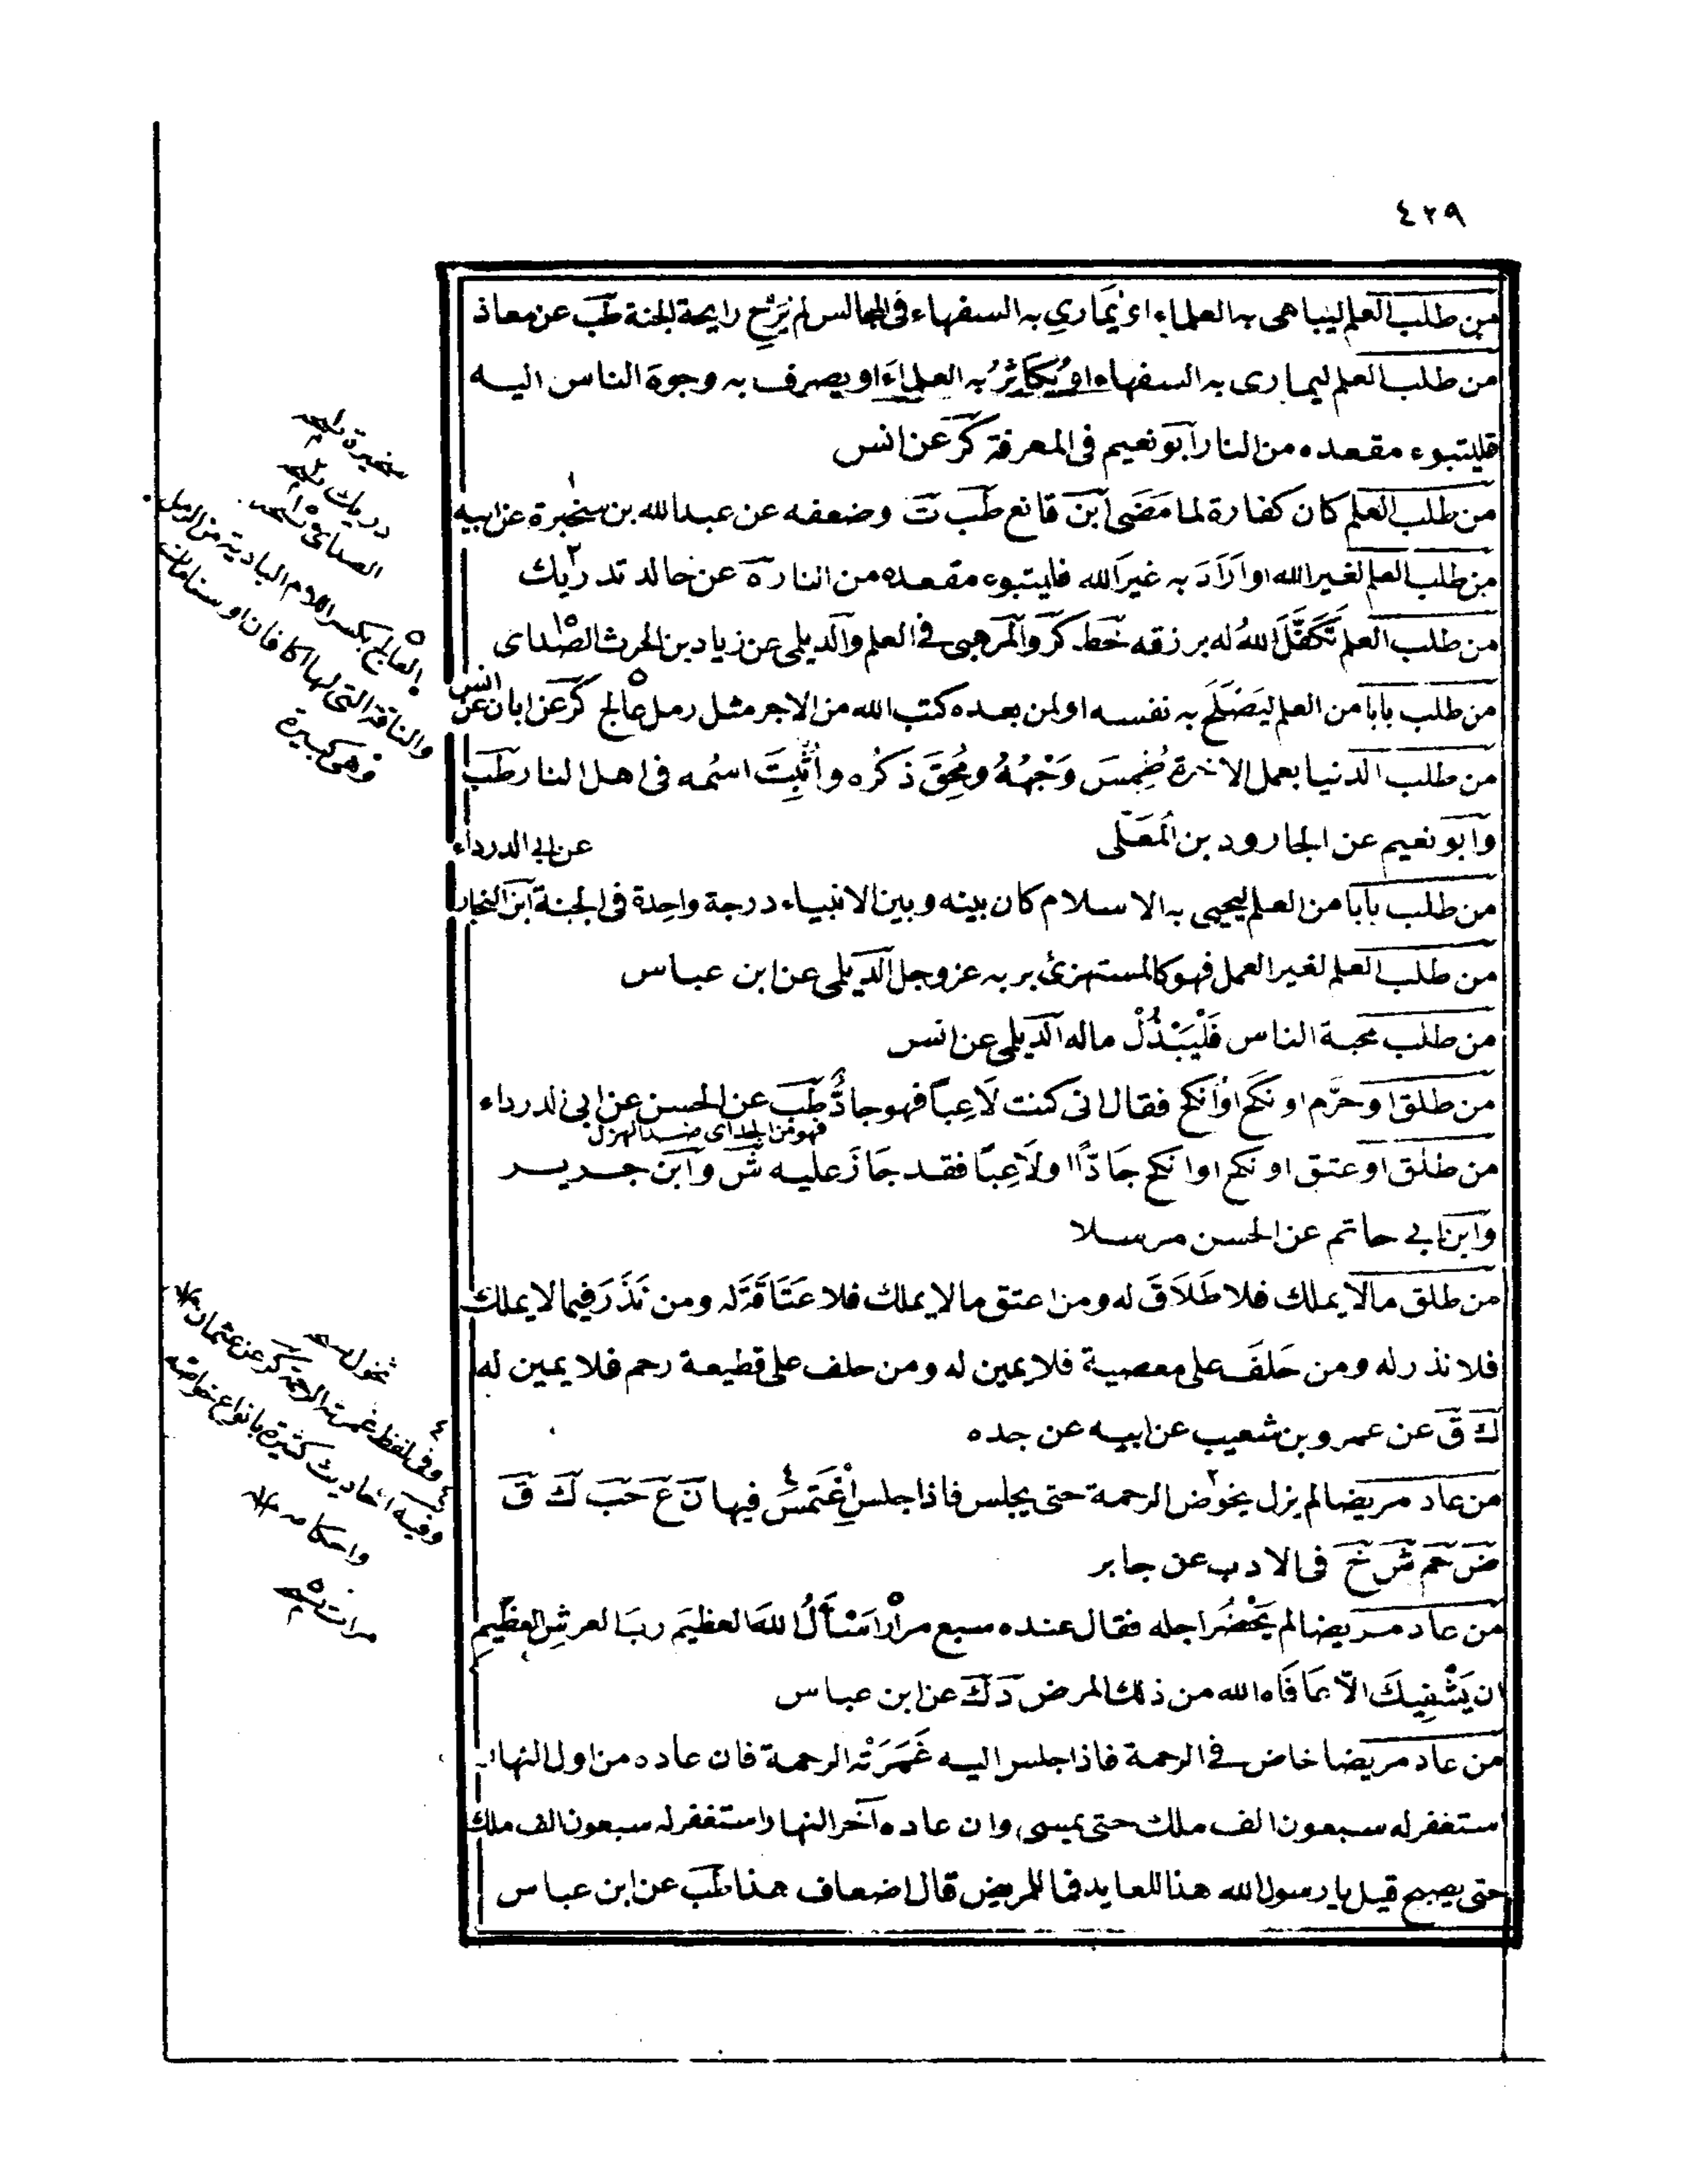 ٤٢٩
من طلب العلم ليباهى به العلماء او يُمارى به السفهاء فى المجالس لم يَرِحْ رايحة الجنة طب عن معاذ
من طلب العلم ليمارى به السفهاء او يُكَاثِرُ به العلماءَ او يصرف به وجوة الناس اليه
فليتبوء مقعده من النار ابو نعيم فى المعرفة كر عن انس
من طلب العلم كان كفارة لما مَضَى ابن قانع طب ت وضعفه عن عبد الله بن سنجرة عن ابيه
من طلب العلم لغير الله او اَرَادَ به غيرَ الله فليتبوء مقعده من النار ه عن خالد تدرايك
من طلب العلم تَكَفَّلَ اللهُ له برزقه خط كر والمرهبى فى العلم والديلمى عن زياد بن الحرث الصداى
من طلب بابا من العلم ليَصْلَحَ به نفسه او لمن بعده كتب الله من الاجر مثل رمل عالج كر عن ابان عن انس
من طلب الدنيا بعمل الاخرة طُمِسَ وَجْهُهُ ومُحِقَ ذكُره واُثْبِتَ اسُمه فى اهل النار طب
وابو نعيم عن الجارود بن المعَلّى
عن ابى الدرداء
من طلب بابا من العلم ليحيى به الاسلام كان بينه وبين الانبياء درجة واحِدة فى الجنة ابن النجار
من طلب العلم لغير العمل فهو كالمستهزئ بربه عز وجل الديلمى عن ابن عباس
من طلب محبة الناس فَلْيَبْذُلْ ماله الديلمى عن انس
من طلق او حرَّم او نكَح او اَنكح فقال انى كنت لَاعِباً فهو جادٌّ طب عن الحسن عن ابى الدرداء
فهو من الجد اى ضد الهزل
من طلق او عتق او نكح او انكح جَادًّا اولَاعِباً فقد جَازَ عليه ش وابن جرير
وابن ابى حاتم عن الحسن مرسلا
من طلق مالا يملك فلا طَلَاقَ له ومن اعتق مالا يملك فلا عَتَاقَةَ له ومن نَذَرَ فيما لا يملك
فلا نذر له ومن حَلَفَ على معصية فلا يمين له ومن حلف على قطيعة رحم فلا يمين له
ك ق عن عمرو بن شعيب عن ابيه عن جده
من عاد مريضا لم يزل يخوض الرحمة حتى يجلس فاذا جلس اغْتَمَسَ فيها ن ع حب ك ق
ض حم ش خ فى الادب عن جابر
من عاد مريضا لم يَحْضُر اجله فقال عنده سبع مرار اَسْأَلُ اللهَ العظيمَ ربَ العرشِ العظِيمِ
ان يَشْفِيكَ الاّ عَافَاه الله من ذلك المرض د ك عن ابن عباس
من عاد مريضا خاض فى الرحمة فاذا جلس اليه غَمَرَتْه الرحمة فان عاده من اول النهار
استغفر له سبعون الف ملك حتى يمسى وان عاده آخر النهار استغفر له سبعون الف ملك
حتى يصبح قيل يا رسول الله هذا للعايد فما للمريض قال اضعاف هذا طب عن ابن عباس
سخبرة نسخه
دريك نسخه
الصدائى نسخه
العالج بكسر اللام البادية من الرمل
والناقة التى لها اكافان او سنامان
وهى كبيرة
يخول نسخه
وفى لفظ غمرته الرحمة كر عن عثمان
وفيه احاديث كثيرة بانواع خواصه
واحكامه
مرات نسخه